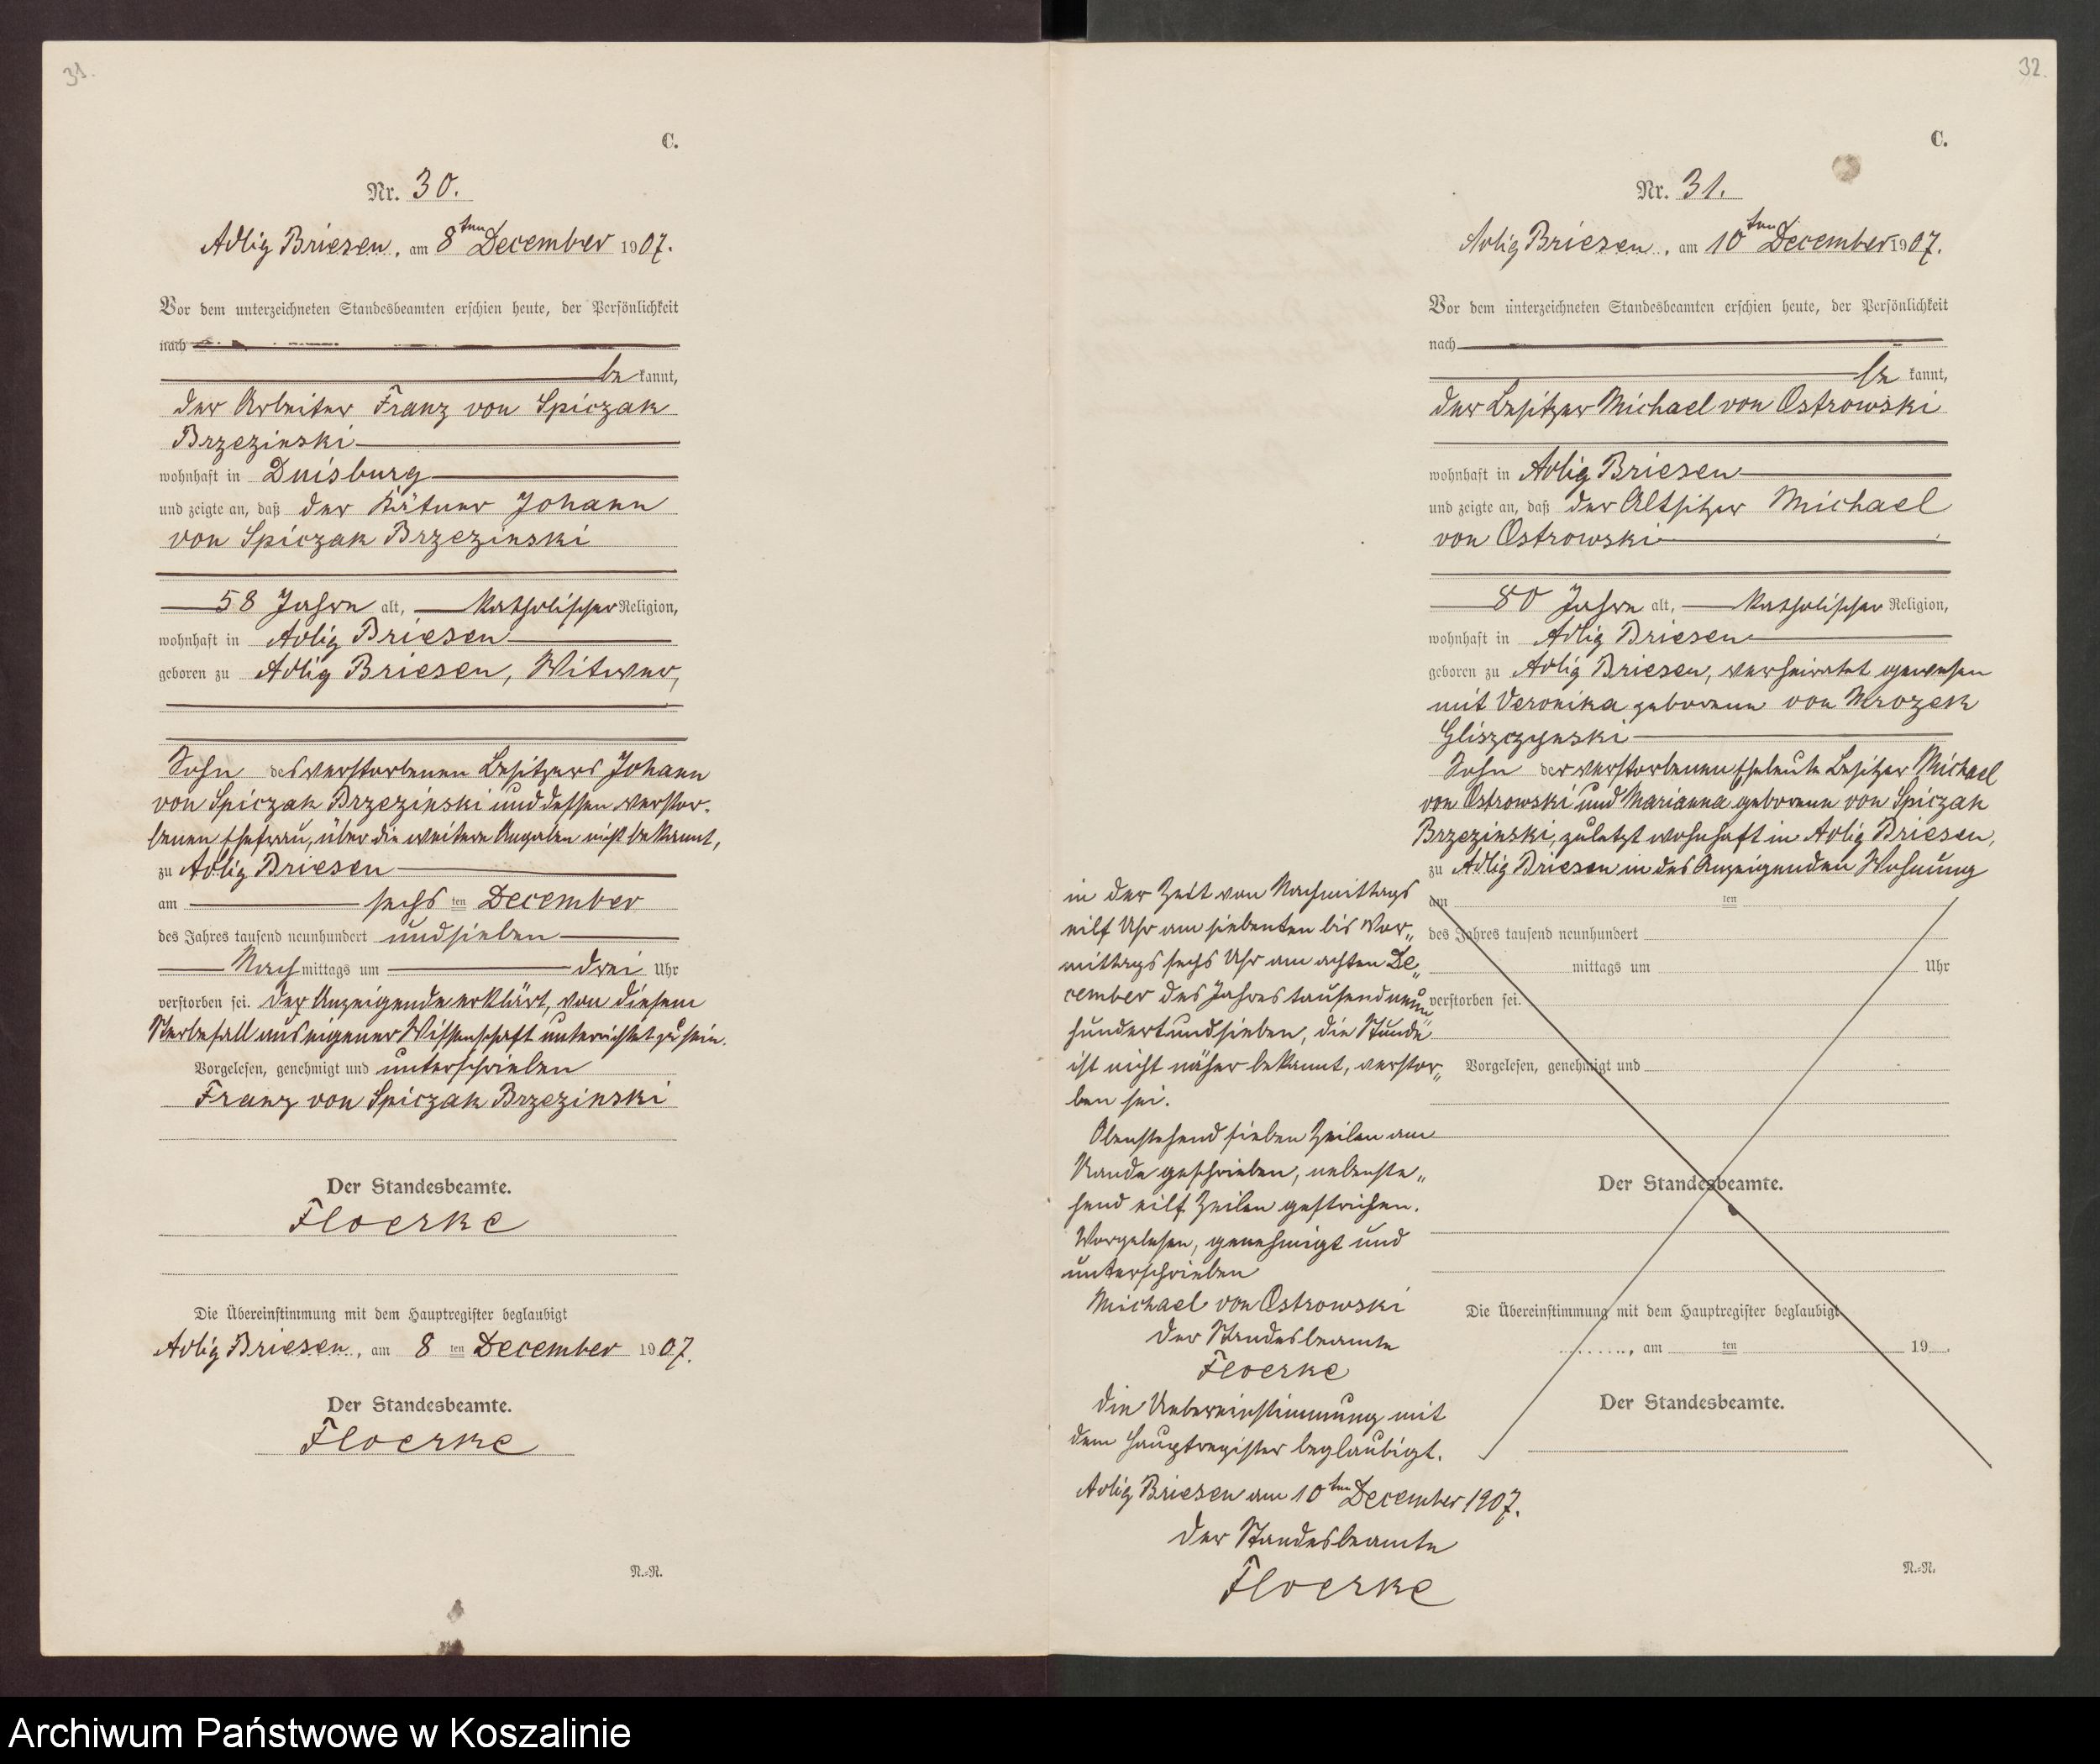 31.
C.
Nr. 30.
Adlig Briesen, am 8ten December 1907.
Vor dem unterzeichneten Standesbeamten erschien heute, der Persönlichkeit
nach
be kannt,
der Arbeiter Franz von Spiczak
Brzezinski
wohnhaft in Duisburg
und zeigte an, daß der Kätner Johann
von Spiczak Brzezinski
58 Jahre alt, katholischer Religion,
wohnhaft in Adlig Briesen
geboren zu Adlig Briesen, Witwer,
Sohn des verstorbenen Besitzers Johann
von Spiczak Brzezinski und dessen verstor-
benen Ehefrau, über die weitere Angaben nicht bekannt,
zu Adlig Briesen
am sechs ten December
des Jahres tausend neunhundert und sieben
Nach mittags um drei Uhr
verstorben sei. Der Anzeigende erklärt, von diesem
Sterbefall aus eigener Wissenschaft unterrichtet zu sein.
Vorgelesen, genehmigt und unterschrieben
Franz von Spiczak Brzezinski
Der Standesbeamte.
Floerke
Die Übereinstimmung mit dem Hauptregister beglaubigt
Adlig Briesen, am 8 ten December 1907.
Der Standesbeamte.
Floerke
N.=N.
32.
C.
Nr. 31.
Adlig Briesen, am 10ten December 1907.
Vor dem unterzeichneten Standesbeamten erschien heute, der Persönlichkeit
nach
be kannt,
der Besitzer Michael von Ostrowski
wohnhaft in Adlig Briesen
und zeigte an, daß der Altsitzer Michael
von Ostrowski
80 Jahre alt, katholischer Religion,
wohnhaft in Adlig Briesen
geboren zu Adlig Briesen, verheiratet gewesen
mit Veronika geborene von Mrozek
Gliszczynski
Sohn der verstorbenen Eheleute Besitzer Michael
von Ostrowski und Marianna geborene von Spiczak
Brzezinski, zuletzt wohnhaft in Adlig Briesen,
zu Adlig Briesen in des Anzeigenden Wohnung
am ten
des Jahres tausend neunhundert
mittags um Uhr
verstorben sei.
Vorgelesen, genehmigt und
Der Standesbeamte.
Die Übereinstimmung mit dem Hauptregister beglaubigt
, am ten 19 .
Der Standesbeamte.
N.=N.
in der Zeit von Nachmittags
eilf Uhr am siebenten bis Vor„
mittags sechs Uhr am achten De„
cember des Jahres tausend neun„
hundert und sieben, die Stunde
ist nicht näher bekannt, verstor„
ben sei.
Obenstehend sieben Zeilen am
Rande geschrieben, nebenste„
hend eilf Zeilen gestrichen.
Vorgelesen, genehmigt und
unterschrieben
Michael von Ostrowski
Der Standesbeamte
Floerke
Die Uebereinstimmung mit
dem Hauptregister beglaubigt.
Adlig Briesen am 10ten December 1907.
Der Standesbeamte
Floerke
Archiwum Państwowe w Koszalinie